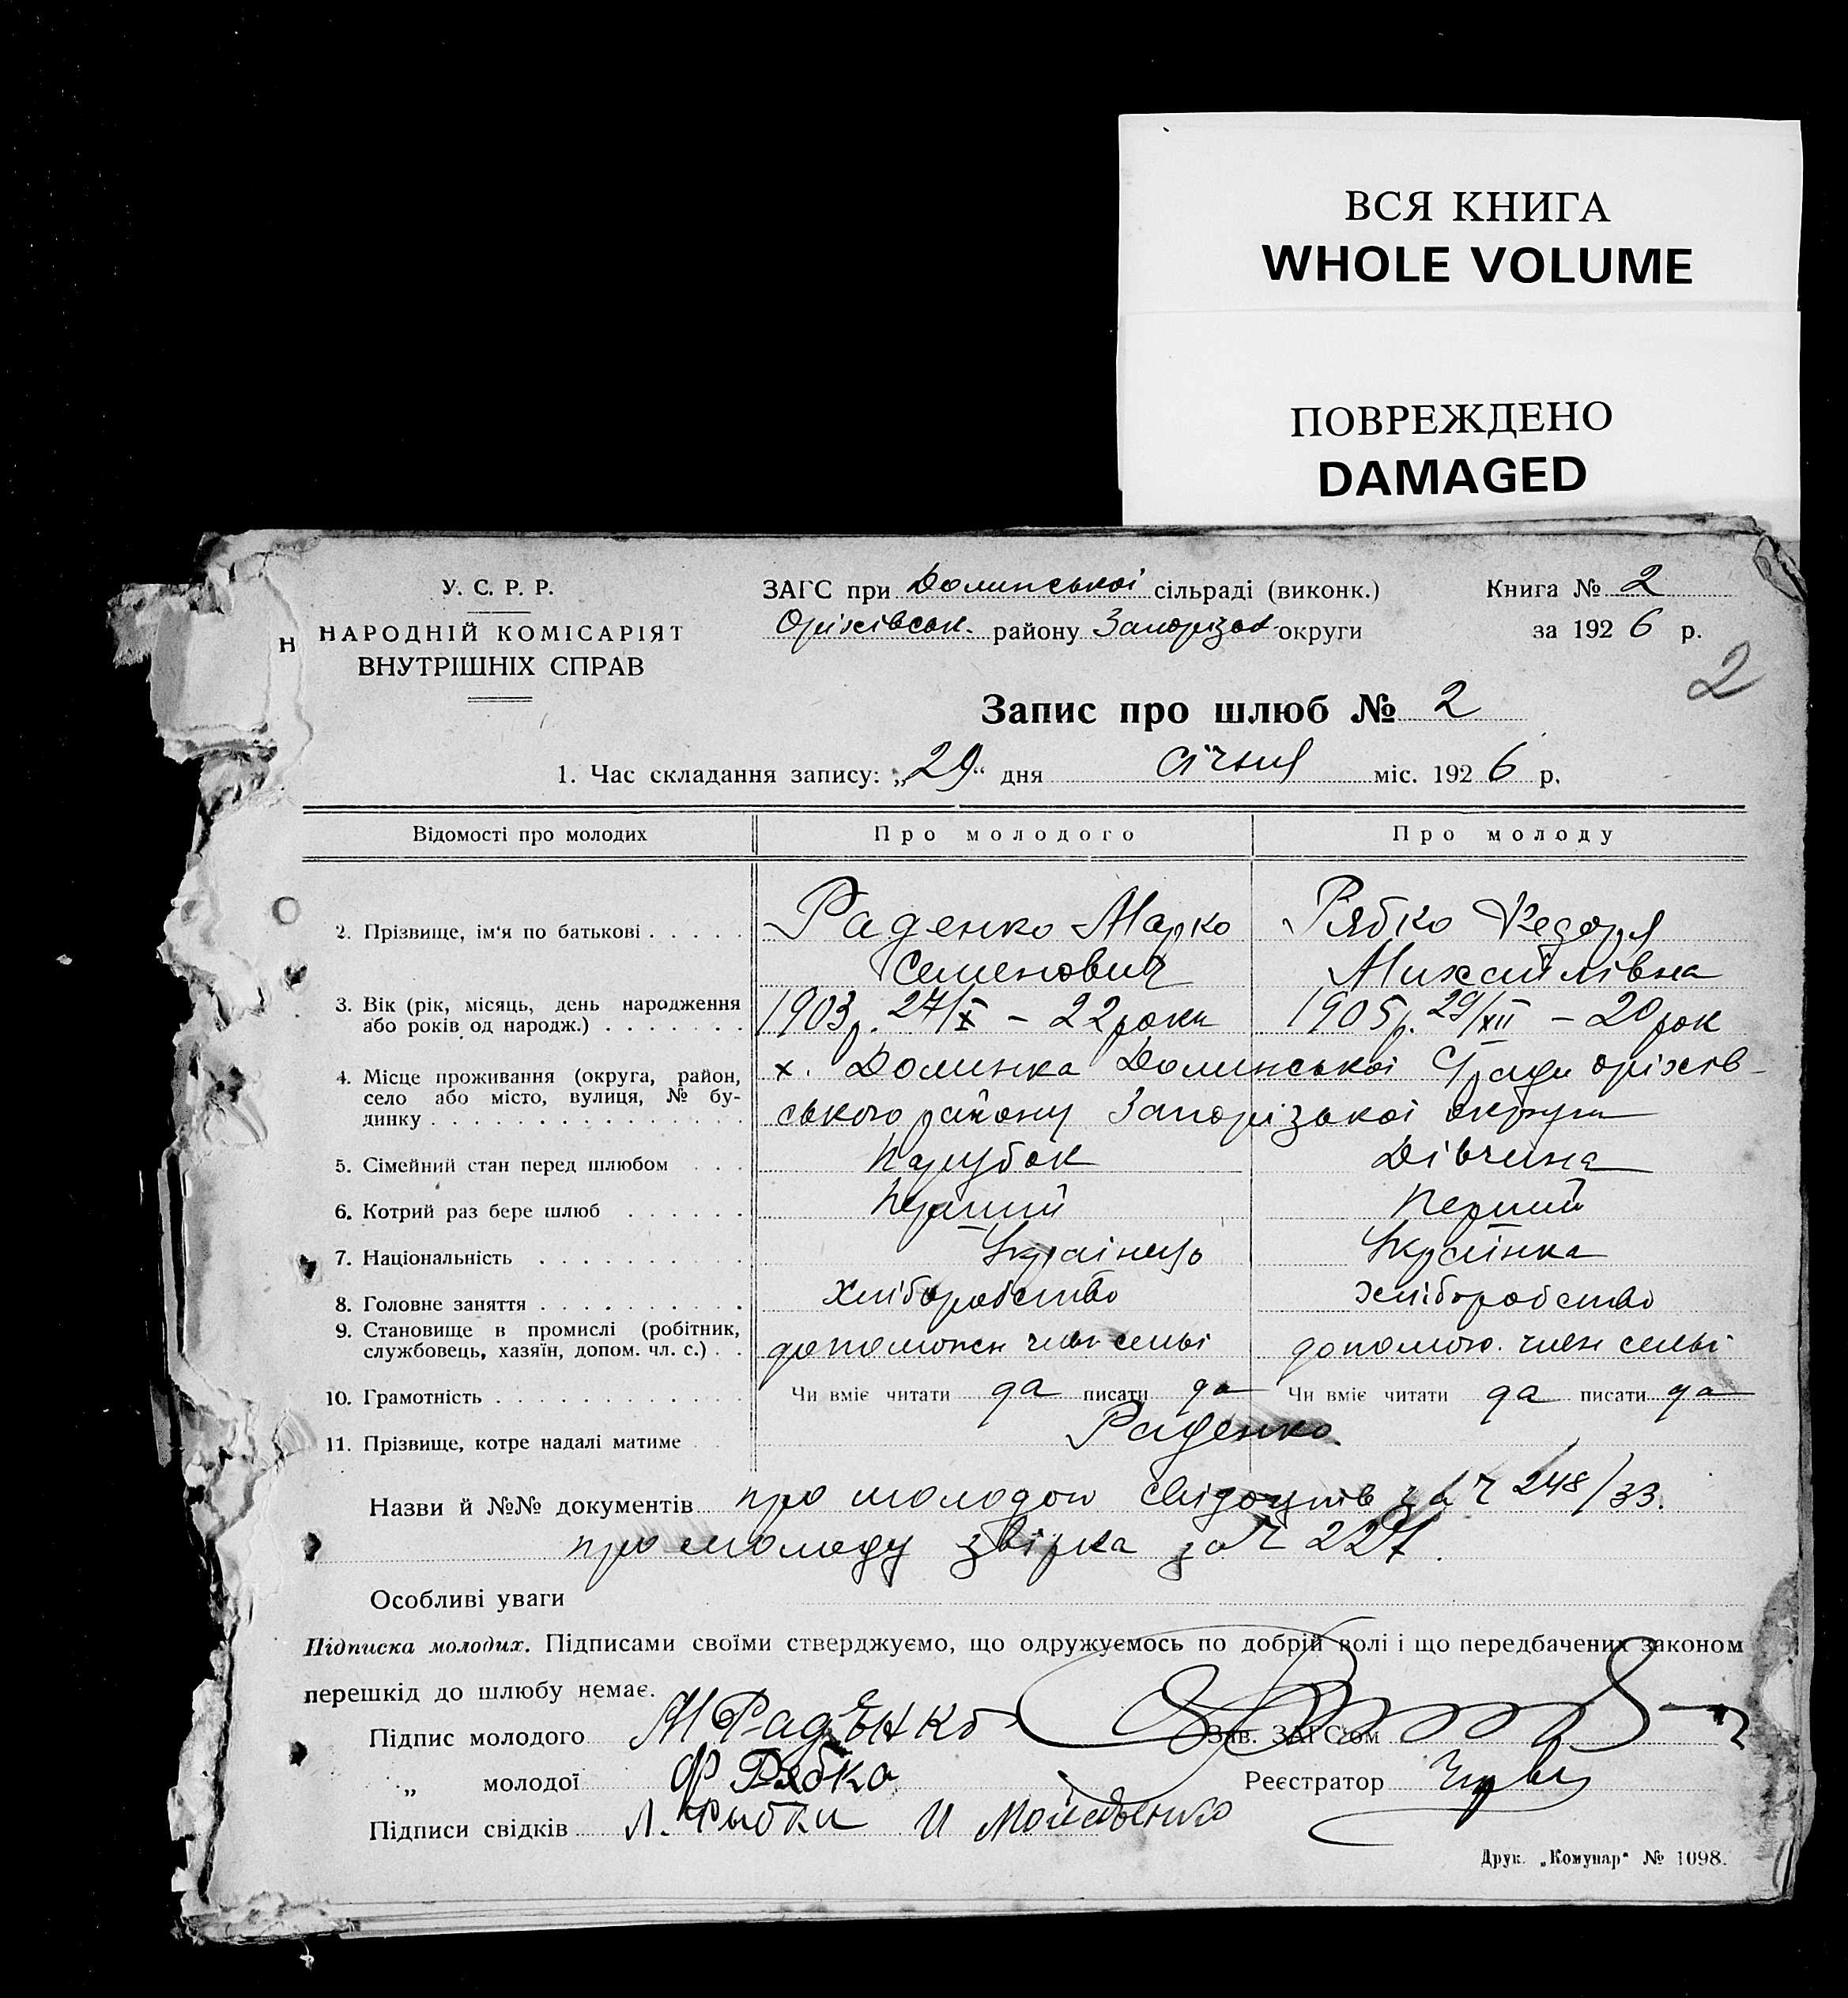 ВСЯ КНИГА
WHOLE VOLUME
ПОВРЕЖДЕНО
DAMAGED
У. С. Р. Р.
ЗАГС при Долинської сільраді (виконк.)
Книга № 2
Н НАРОДНІЙ КОМІСАРІЯТ
ВНУТРІШНІХ СПРАВ
Оріхівськ. району Запорізьк округи
за 1926 р.
2
Запис про шлюб № 2
1. Час складання запису: „29“ дня січня міс. 1926 р.
Відомості про молодих Про молодого Про молоду
2. Прізвище, ім'я по батькові . . . . . Раденко Марко Рябко Федора
Семенович Михайлівна
3. Вік (рік, місяць, день народження
або років од народж.) . . . . . . . 1903 р. 27/X – 22 роки 1905 р. 29/XII – 20 рок
4. Місце проживання (округа, район,
село або місто, вулиця, № бу-
динку . . . . . . . . . . . . . . . .
х. Долинка Долинської С/ради Оріхів-
ського району Запорізької округи
5. Сімейний стан перед шлюбом . . . Парубок Дівчина
6. Котрий раз бере шлюб . . . . . . Перший Перший
7. Національність . . . . . . . . . . Українець Українка
8. Головне заняття . . . . . . . . . . Хліборобство Хліборобство
9. Становище в промислі (робітник,
службовець, хазяїн, допом. чл. с.) . . допоможн член семьі допомож. член семьі
10. Грамотність . . . . . . . . . . . . Чи вміє читати да писати да Чи вміє читати да писати да
11. Прізвище, котре надалі матиме . . Раденко
Назви й №№ документів про молодого свідоцтв за Ч 248/33.
про молоду звірка за Ч 227.
Особливі уваги
Підписка молодих. Підписами своїми стверджуємо, що одружуємось по добрій волі і що передбачених законом
перешкід до шлюбу немає.
Підпис молодого М Раденко Зав. ЗАГС'ом
„ молодої Ф Рябко Реєстратор
Підписи свідків Л. И
Друк. „Комунар“ № 1098.